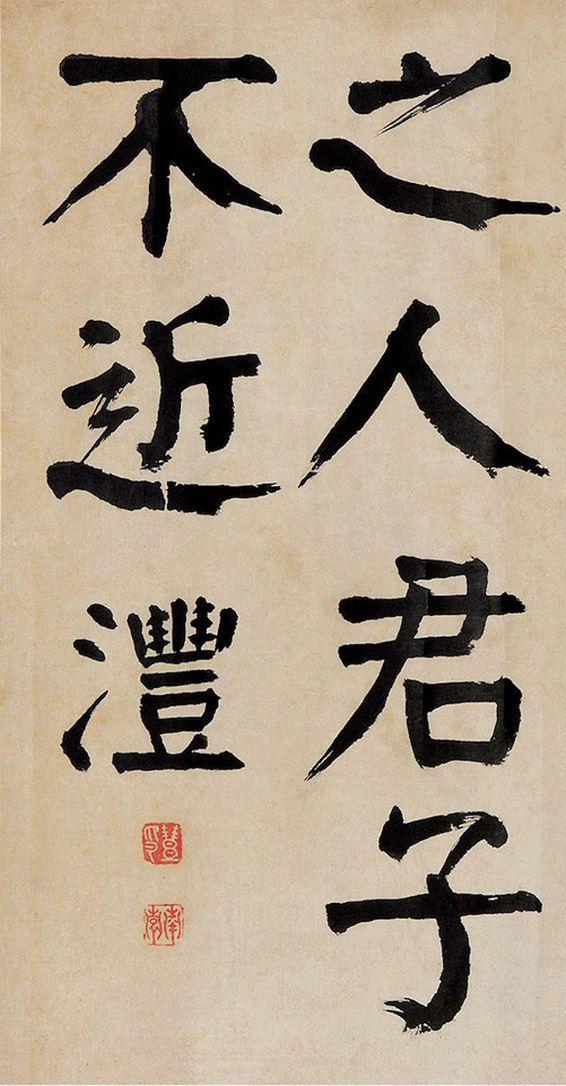 之人君子
不近澧